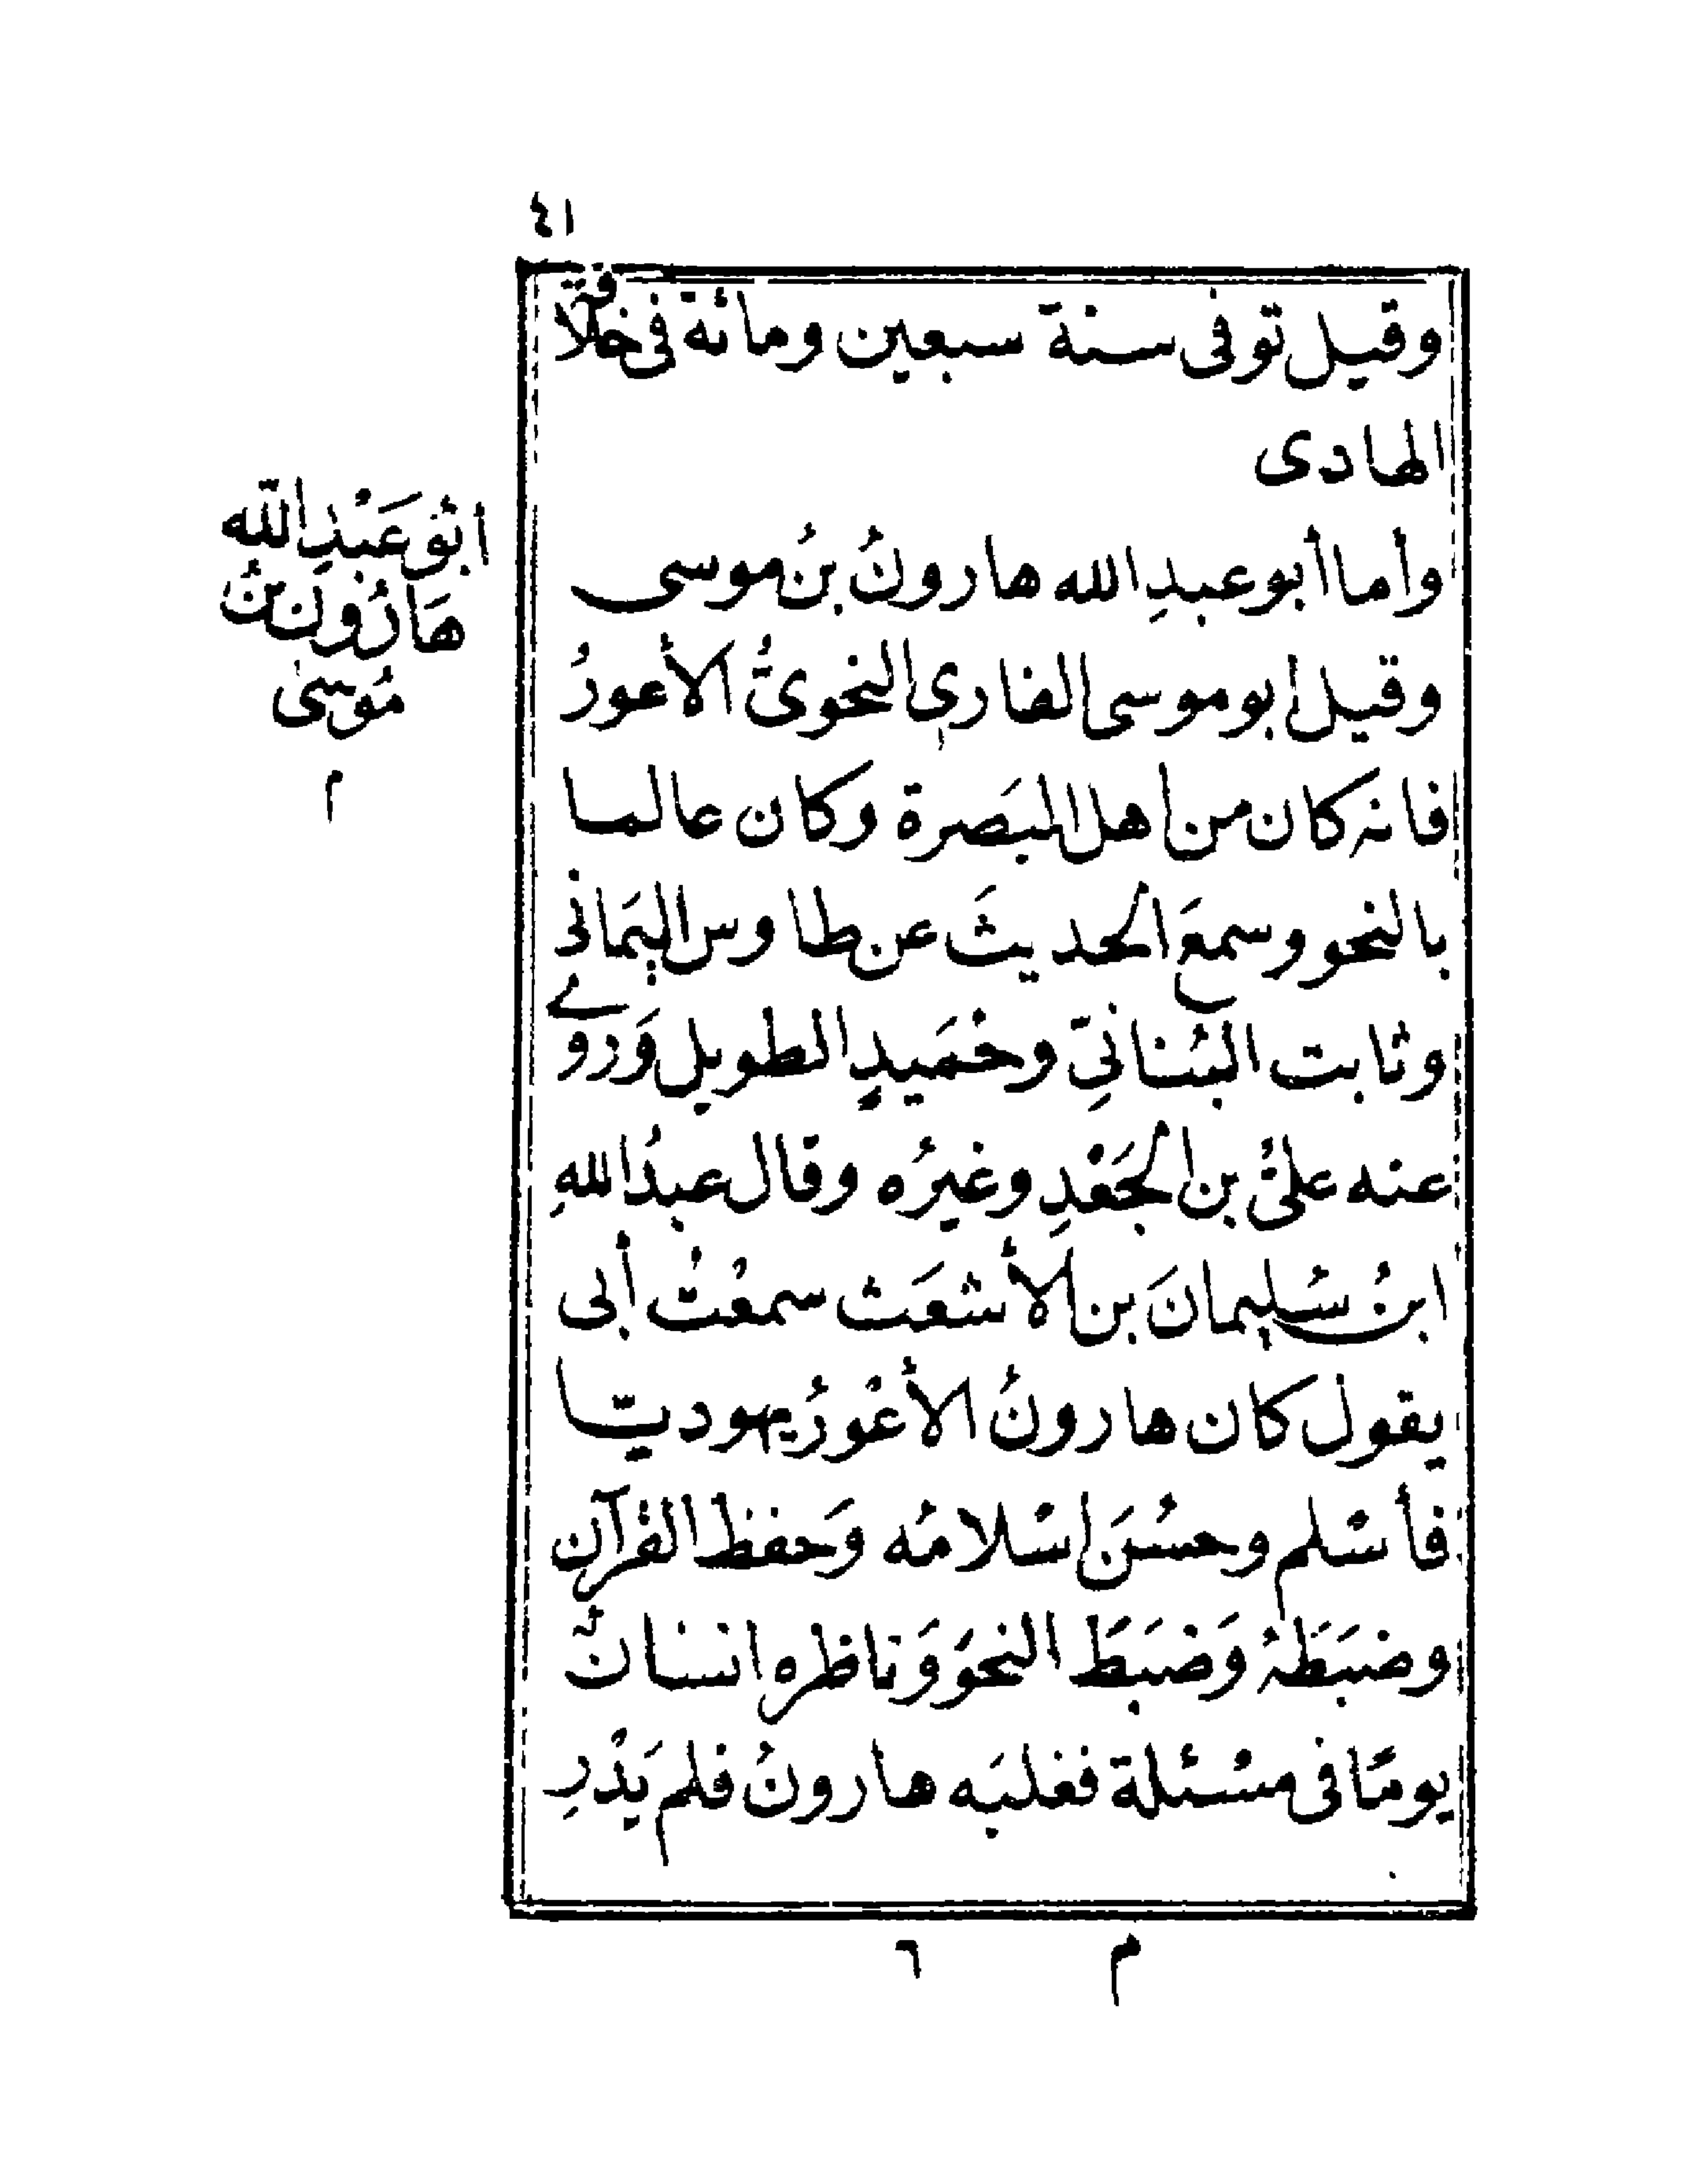 ٤١
وقيل توفى سنة سبعين ومائة فى خلافة
الهادى
وأما أبو عبدِ الله هارونُ بنُ موسى
وقيل ابو موسى القارى النحوىُّ الأعورُ
فانه كان من اهل البَصرة وكان عالما
بالنحو وسمعَ الحديثَ عن طاوس اليَمانى
وثابت البُنانىِّ وحُمَيدٍ الطويل وَروى
عنه علىُّ بن الجَعْدِ وغيرُه وقال عبدُ اللهِ
ابنُ سُليمانَ بن الأشعَث سمعْتُ أبى
يقول كان هارونُ الأعْورُ يهوديّا
فأسْلم وحسُنَ اسْلامُه وَحفظ القرآن
وضبَطَهُ وَضبَطَ النحوَ وَناظره انسانٌ
يومًا فى مسْئلة فغلبَه هارونُ فلم يَدْرِ
ابُو عَبْدِ اللّه
هَارُون بْنُ
مُوسىٰ
م
م ٦